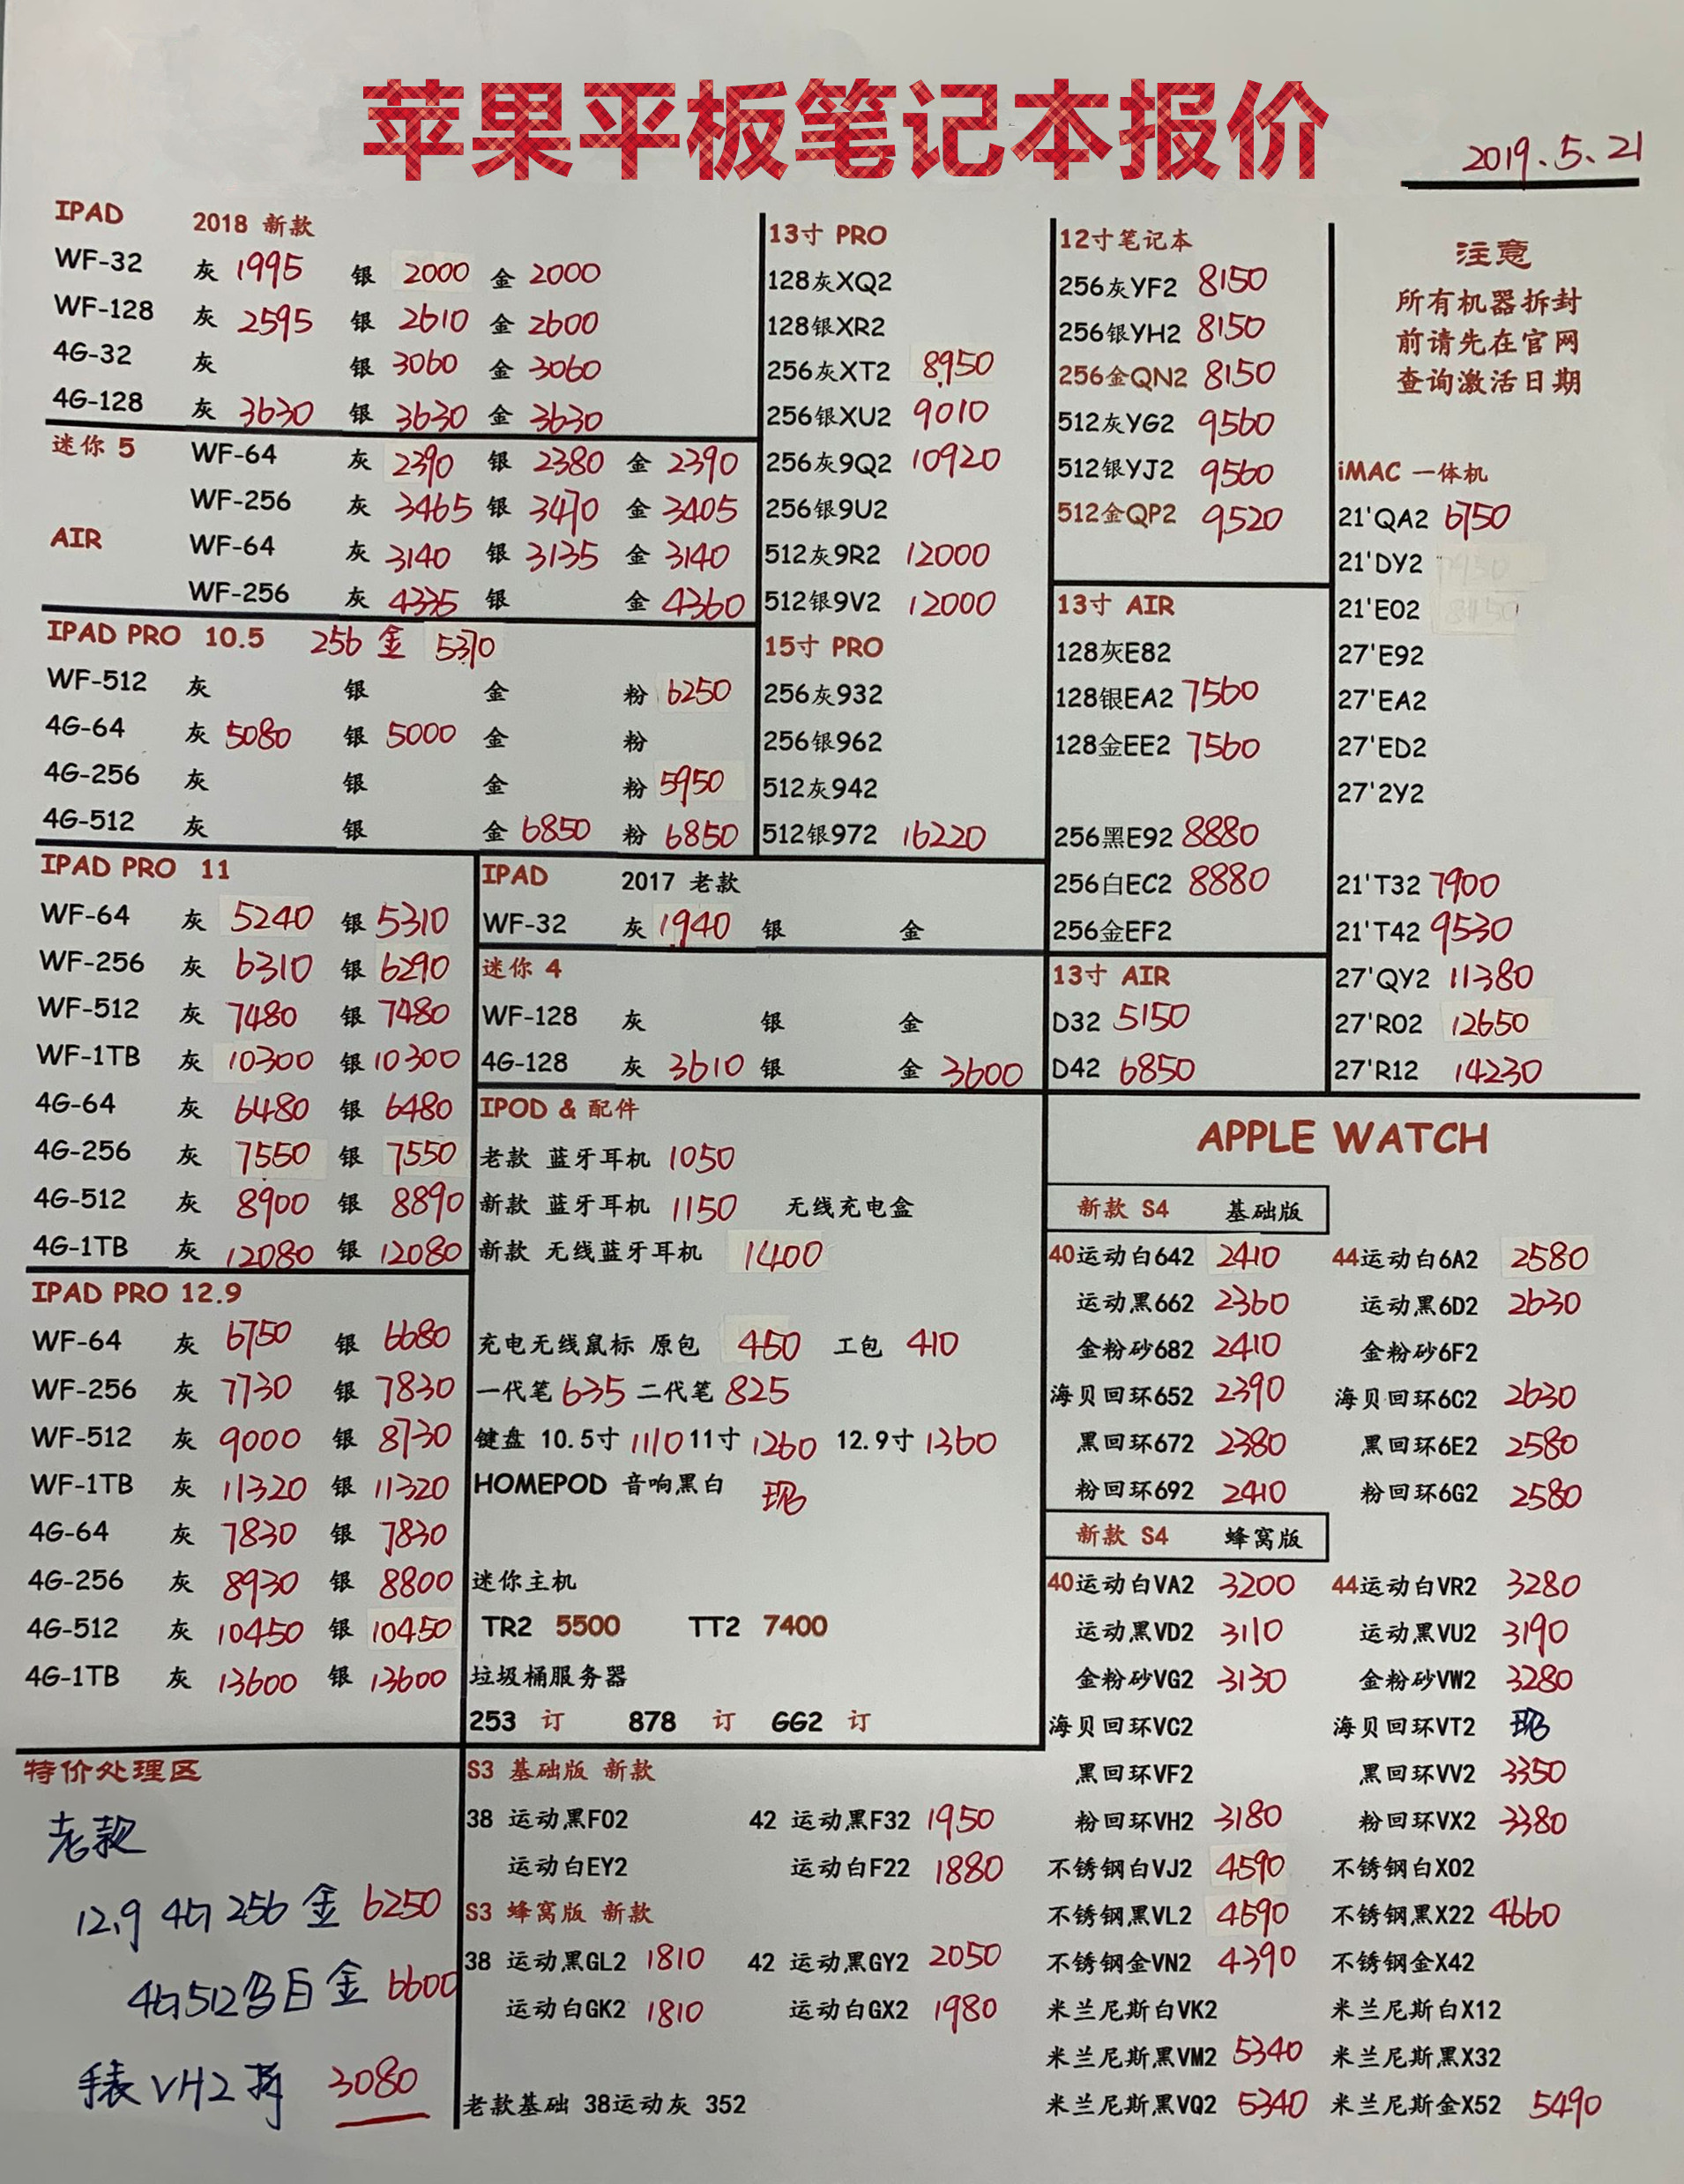 苹果平板笔记本报价
2019.5.21
IPAD 2018 新款
WF-32 灰 1995 银 2000 金 2000
WF-128 灰 2595 银 2610 金 2600
4G-32 灰 银 3060 金 3060
4G-128 灰 3630 银 3630 金 3630
迷你 5 WF-64 灰 2390 银 2380 金 2390
WF-256 灰 3465 银 3470 金 3405
AIR WF-64 灰 3140 银 3135 金 3140
WF-256 灰 4335 银 金 4360
IPAD PRO 10.5 256 金 5370
WF-512 灰 银 金 粉 6250
4G-64 灰 5080 银 5000 金 粉
4G-256 灰 银 金 粉 5950
4G-512 灰 银 金 6850 粉 6850
13寸 PRO
128灰XQ2
128银XR2
256灰XT2 8950
256银XU2 9010
256灰9Q2 10920
256银9U2
512灰9R2 12000
512银9V2 12000
15寸 PRO
256灰932
256银962
512灰942
512银972 16220
12寸笔记本
256灰YF2 8150
256银YH2 8150
256金QN2 8150
512灰YG2 9560
512银YJ2 9560
512金QP2 9520
13寸 AIR
128灰E82
128银EA2 7560
128金EE2 7560
256黑E92 8880
256白EC2 8880
256金EF2
13寸 AIR
D32 5150
D42 6850
注意
所有机器拆封
前请先在官网
查询激活日期
iMAC 一体机
21'QA2 6750
21'DY2
21'E02
27'E92
27'EA2
27'ED2
27'2Y2
21'T32 7900
21'T42 9530
27'QY2 11380
27'R02 12650
27'R12 14230
IPAD PRO 11
WF-64 灰 5240 银 5310
WF-256 灰 6310 银 6290
WF-512 灰 7480 银 7480
WF-1TB 灰 10300 银 10300
4G-64 灰 6480 银 6480
4G-256 灰 7550 银 7550
4G-512 灰 8900 银 8890
4G-1TB 灰 12080 银 12080
IPAD PRO 12.9
WF-64 灰 6750 银 6680
WF-256 灰 7730 银 7830
WF-512 灰 9000 银 8730
WF-1TB 灰 11320 银 11320
4G-64 灰 7830 银 7830
4G-256 灰 8930 银 8800
4G-512 灰 10450 银 10450
4G-1TB 灰 13600 银 13600
IPAD 2017 老款
WF-32 灰 1940 银 金
迷你 4
WF-128 灰 银 金
4G-128 灰 3610 银 金 3600
IPOD & 配件
老款 蓝牙耳机 1050
新款 蓝牙耳机 1150 无线充电盒
新款 无线蓝牙耳机 1400
充电无线鼠标 原包 450 工包 410
一代笔 635 二代笔 825
键盘 10.5寸 1110 11寸 1260 12.9寸 1360
HOMEPOD 音响黑白 现
迷你主机
TR2 5500 TT2 7400
垃圾桶服务器
253 订 878 订 GG2 订
APPLE WATCH
新款 S4 基础版
40运动白642 2410 44运动白6A2 2580
运动黑662 2360 运动黑6D2 2630
金粉砂682 2410 金粉砂6F2
海贝回环652 2390 海贝回环6C2 2630
黑回环672 2380 黑回环6E2 2580
粉回环692 2410 粉回环6G2 2580
新款 S4 蜂窝版
40运动白VA2 3200 44运动白VR2 3280
运动黑VD2 3110 运动黑VU2 3190
金粉砂VG2 3130 金粉砂VW2 3280
海贝回环VC2 海贝回环VT2 现
黑回环VF2 黑回环VV2 3350
粉回环VH2 3180 粉回环VX2 3380
不锈钢白VJ2 4590 不锈钢白X02
不锈钢黑VL2 4590 不锈钢黑X22 4660
不锈钢金VN2 4390 不锈钢金X42
米兰尼斯白VK2 米兰尼斯白X12
米兰尼斯黑VM2 5340 米兰尼斯黑X32
米兰尼斯黑VQ2 5340 米兰尼斯金X52 5490
特价处理区
老款
12.9 4G 256 金 6250
4G 512 白 金 6600
手表 VH2 3080
S3 基础版 新款
38 运动黑F02 42 运动黑F32 1950
运动白EY2 运动白F22 1880
S3 蜂窝版 新款
38 运动黑GL2 1810 42 运动黑GY2 2050
运动白GK2 1810 运动白GX2 1980
老款基础 38运动灰 352